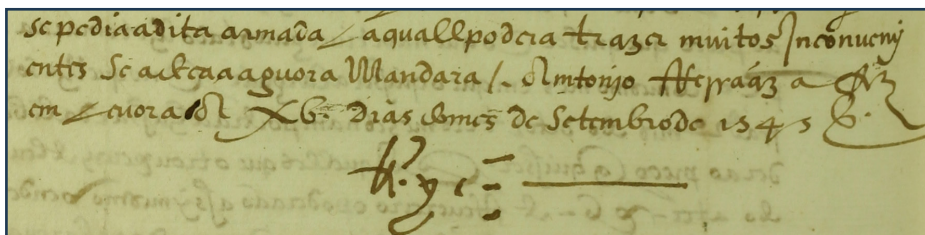 se pedia a dita armada / a quall podera trazer muitos Inconueny
entes Se a elRa aguora Mandara /. Amtonjo Ferraãz a fez
em euora a XB dias do mes de Setembro de 1545
Rey